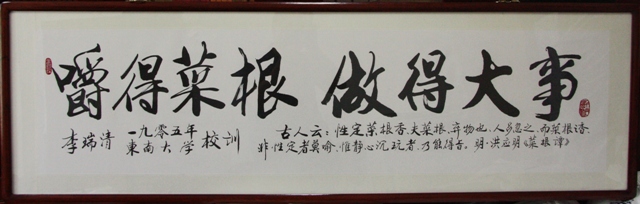 嚼得菜根 做得大事
李瑞清
一九零五年
東南大学 校训
古人云：性定菜根香、夫菜根、弃物也、人多忽之、而菜根
非性定者莫喻、惟静心沉玩者、乃能得旨。明·洪应明《菜根谭》